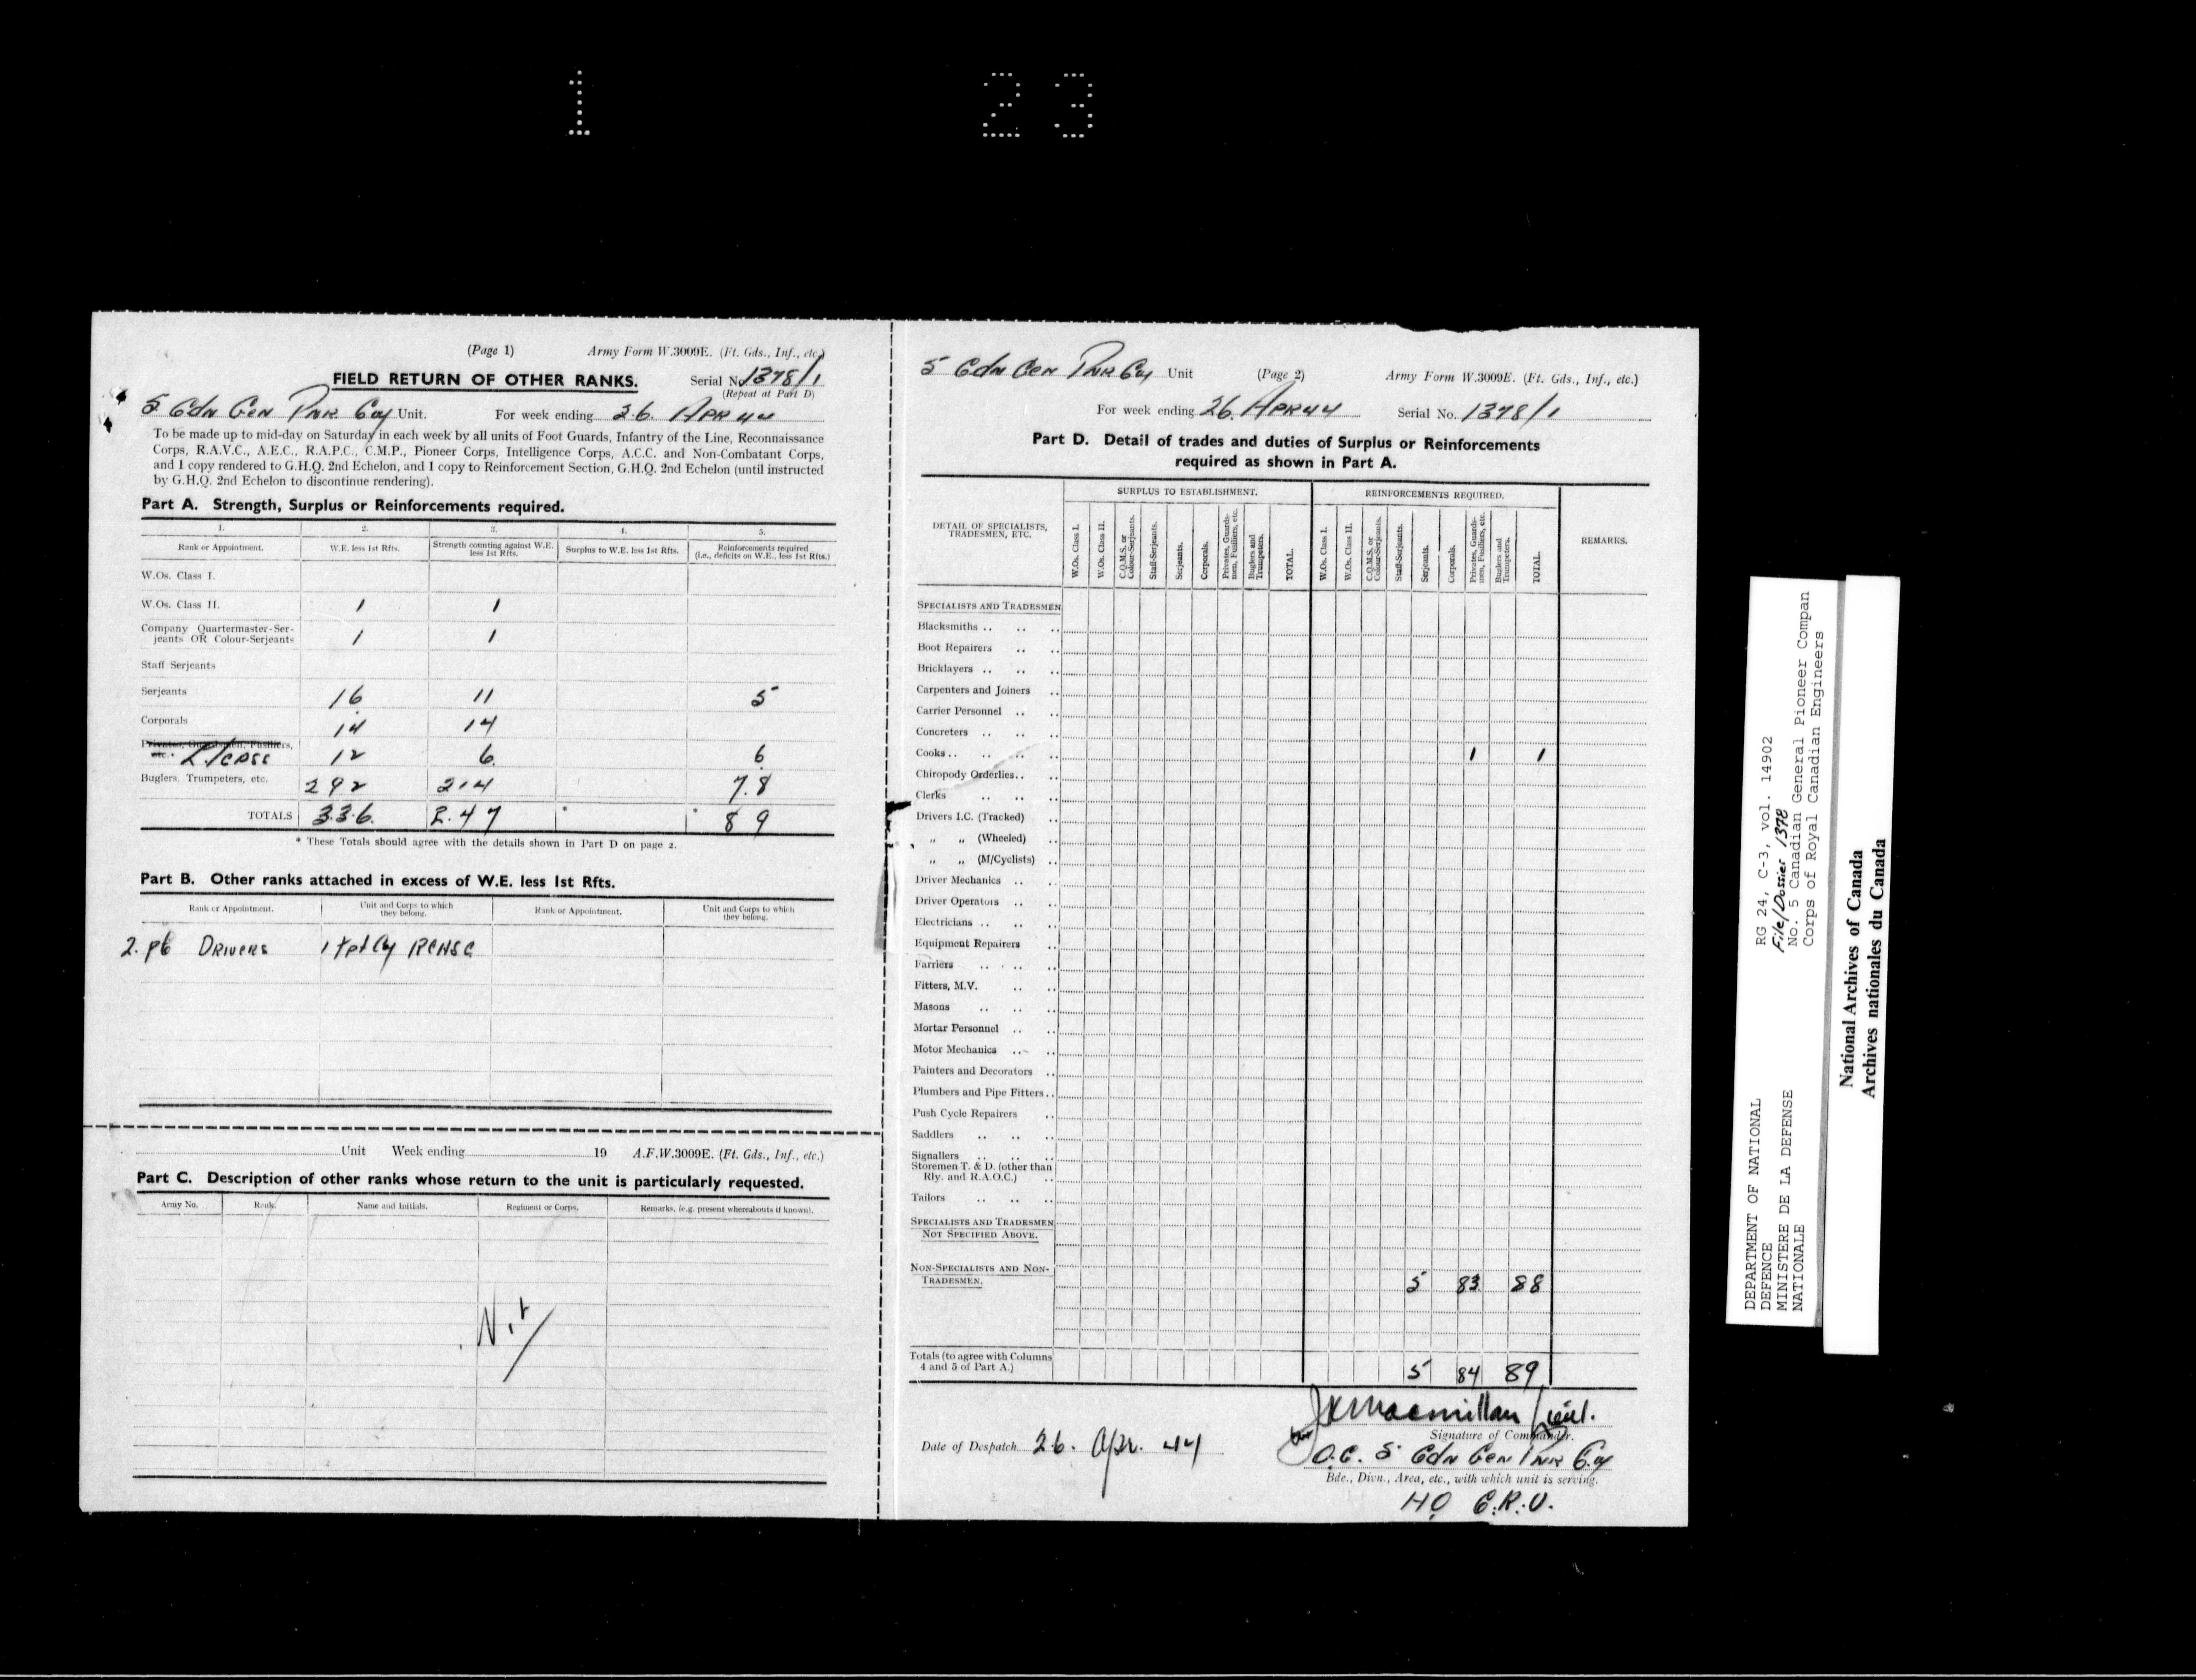 1 23
(Page 1) Army Form W.3009E. (Ft. Gds., Inf., etc.)
FIELD RETURN OF OTHER RANKS. Serial No 1378/1
(Repeat at Part D)
5 Cdn Gen Pnr Coy Unit. For week ending 26. APR 44
To be made up to mid-day on Saturday in each week by all units of Foot Guards, Infantry of the Line, Reconnaissance
Corps, R.A.V.C., A.E.C., R.A.P.C., C.M.P., Pioneer Corps, Intelligence Corps, A.C.C. and Non-Combatant Corps,
and 1 copy rendered to G.H.Q. 2nd Echelon, and 1 copy to Reinforcement Section, G.H.Q. 2nd Echelon (until instructed
by G.H.Q. 2nd Echelon to discontinue rendering).
Part A. Strength, Surplus or Reinforcements required.
1. 2. 3. 4. 5.
Rank or Appointment. W.E. less 1st Rfts. Strength counting against W.E. less 1st Rfts. Surplus to W.E. less 1st Rfts. Reinforcements required (i.e., deficits on W.E., less 1st Rfts.)
W.Os. Class I.
W.Os. Class II. 1 1
Company Quartermaster-Ser-
jeants OR Colour-Serjeants 1 1
Staff Serjeants
Serjeants 16 11 5
Corporals 14 14
Privates, Guardsmen, Fusiliers,
etc. L/CPLS 12 6. 6
Buglers, Trumpeters, etc. 292 214 78
TOTALS 336. 247 * * 89
* These Totals should agree with the details shown in Part D on page 2.
Part B. Other ranks attached in excess of W.E. less 1st Rfts.
Rank or Appointment. Unit and Corps to which they belong. Rank or Appointment. Unit and Corps to which they belong.
2. DRIVERS 1 Tpt Coy
Unit Week ending 19 A.F.W.3009E. (Ft. Gds., Inf., etc.)
Part C. Description of other ranks whose return to the unit is particularly requested.
Army No. Rank. Name and Initials. Regiment or Corps. Remarks, (e.g. present whereabouts if known).
Nil
5 Cdn Gen Pnr Coy Unit (Page 2) Army Form W.3009E. (Ft. Gds., Inf., etc.)
For week ending 26. APR 44 Serial No. 1378/1
Part D. Detail of trades and duties of Surplus or Reinforcements
required as shown in Part A.
DETAIL OF SPECIALISTS, TRADESMEN, ETC. SURPLUS TO ESTABLISHMENT. REINFORCEMENTS REQUIRED. REMARKS.
W.Os. Class I. W.Os. Class II. C.Q.M.S. or Colour-Serjeants. Staff-Serjeants. Serjeants. Corporals. Privates, Guardsmen, Fusiliers, etc. Buglers and Trumpeters. TOTAL. W.Os. Class I. W.Os. Class II. C.Q.M.S. or Colour-Serjeants. Staff-Serjeants. Serjeants. Corporals. Privates, Guardsmen, Fusiliers, etc. Buglers and Trumpeters. TOTAL.
SPECIALISTS AND TRADESMEN
Blacksmiths .. .. ..
Boot Repairers .. ..
Bricklayers .. .. ..
Carpenters and Joiners ..
Carrier Personnel .. ..
Concreters .. .. ..
Cooks .. .. .. .. 1 1
Chiropody Orderlies .. ..
Clerks .. .. ..
Drivers I.C. (Tracked) ..
„ „ (Wheeled)
„ „ (M/Cyclists) ..
Driver Mechanics .. ..
Driver Operators .. ..
Electricians .. .. ..
Equipment Repairers ..
Farriers .. .. ..
Fitters, M.V. .. ..
Masons .. .. ..
Mortar Personnel .. ..
Motor Mechanics .. ..
Painters and Decorators ..
Plumbers and Pipe Fitters ..
Push Cycle Repairers ..
Saddlers .. .. ..
Signallers .. .. ..
Storemen T. & D. (other than
Rly. and R.A.O.C.) ..
Tailors .. .. ..
SPECIALISTS AND TRADESMEN
NOT SPECIFIED ABOVE.
NON-SPECIALISTS AND NON-
TRADESMEN. 5 83 88
Totals (to agree with Columns
4 and 5 of Part A.) 5 84 89
JKMacmillan Lieut.
Signature of Commander.
Date of Despatch 26. Apr. 44
O.C. 5 Cdn Gen Pnr Coy
Bde., Divn., Area, etc., with which unit is serving.
HQ C.R.U.
DEPARTMENT OF NATIONAL
DEFENCE
MINISTERE DE LA DEFENSE
NATIONALE
RG 24, C-3, vol. 14902
File/Dossier 1378
No. 5 Canadian General Pioneer Compan
Corps of Royal Canadian Engineers
National Archives of Canada
Archives nationales du Canada